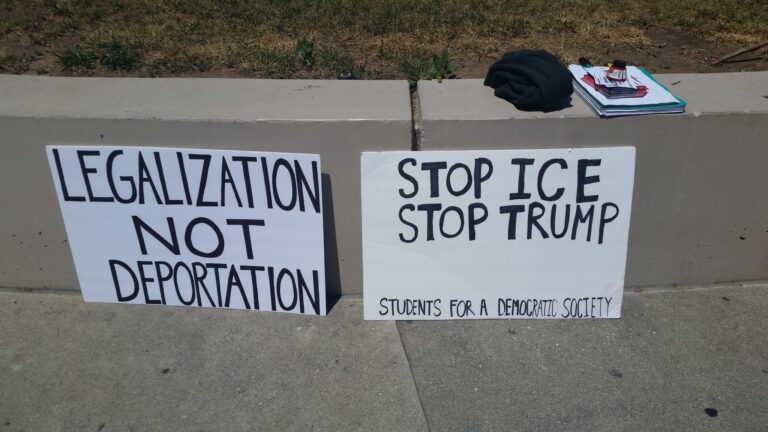 LEGALIZATION
NOT
DEPORTATION
STOP ICE
STOP TRUMP
STUDENTS FOR A DEMOCRATIC SOCIETY